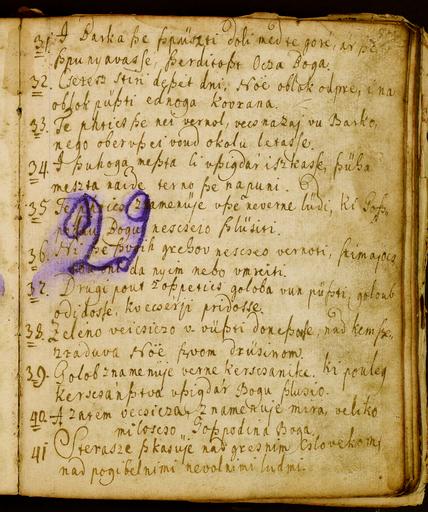 31. A Barka ße ßpuszti doli med te gore, ar ße
ßpunyavasse, ßerditoßt Ocza Boga.
32. Csetere stiri deßet dni, Nóe oblok odpre, i na
oblok püßti ednoga Kovrana.
33. Te phtics ße nei vernol, vecs nazaj vu Barko,
nego obervßei voud okolu letasse.
34. A ßuhoga meßta li vßigdar iszkasse, ßuha
meszta naide terno ße napuni.
35. Te phtics znamenüje vße neverne lüdi, ki
Bogu nescsejo ßlüsiti.
36. Ni ße ßvoih grehov nescsejo vernoti,
oni da nyim nebo vmreiti.
37. Drugi pout zoßpetics goloba vun püßti, goloub
odidosse, k vecserji pridosse.
38. Zeleno veicsiczo v vüßti donesse, nad kem ße
zraduva Nóë ßvom drüsinom.
39. Golob znamenüje verne kerscsanike, ki pouleg
kerscsanßtva vßigdar Bogu ßlüsio.
40. A zatem vecsicza, znamenüje mira, veliko
miloscso Goßpodina Boga.
41 Stera sze ßkasüje nad gresnim cslovekom,
nad pogibelnimi nevolnimi lüdmi.
29